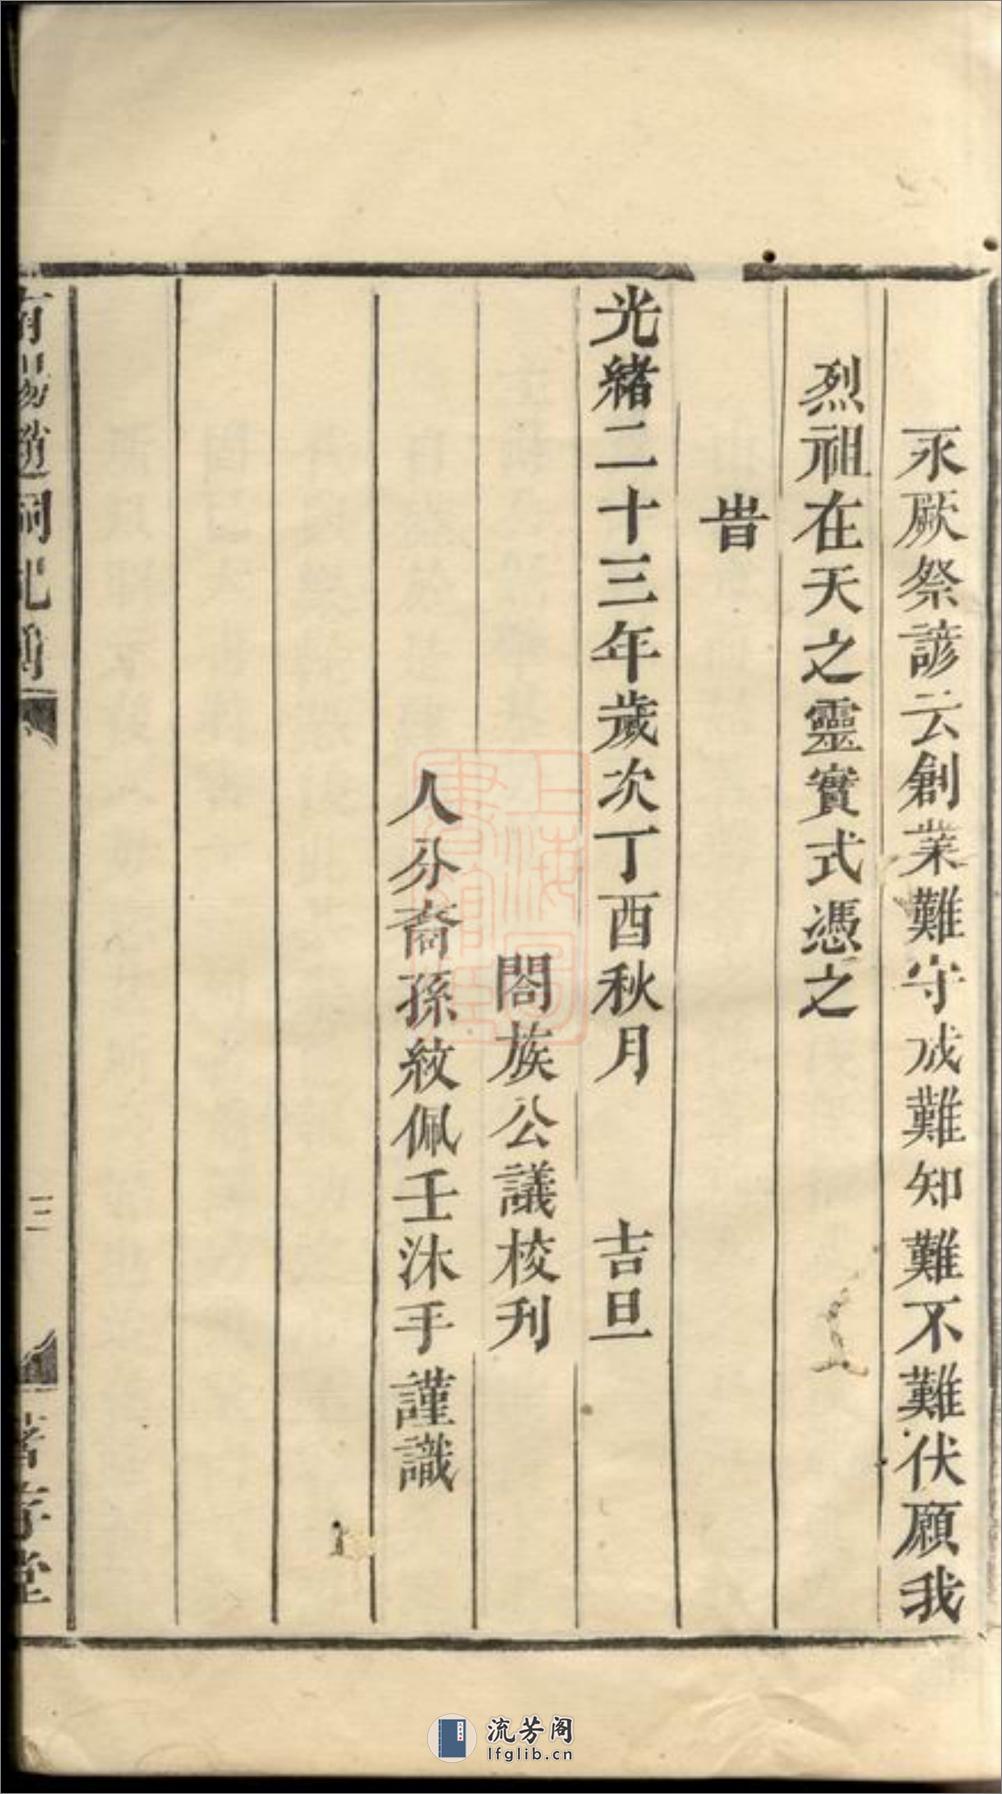 永厥祭諺云創業難守成難知難不難伏願我
烈祖在天之靈實式憑之
旹
光緒二十三年歲次丁酉秋月 吉旦
閤族公議校刋
人分裔孫紋佩壬沐手謹識
三
上海圖書館藏
流芳阁
lfglib.cn